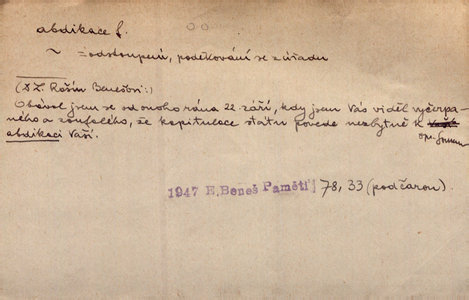 abdikace f.
~ = odstoupení, poděkování se z úřadu
(Dr L. Rašín Benešovi:)
Obával jsem se od onoho rána 22 září, kdy jsem Vás viděl vyčerpa-
ného a zoufalého, že kapitulace státu povede nezbytně k
abdikaci Vaší.
1947 E. Beneš Paměti 78, 33 (pod čarou).